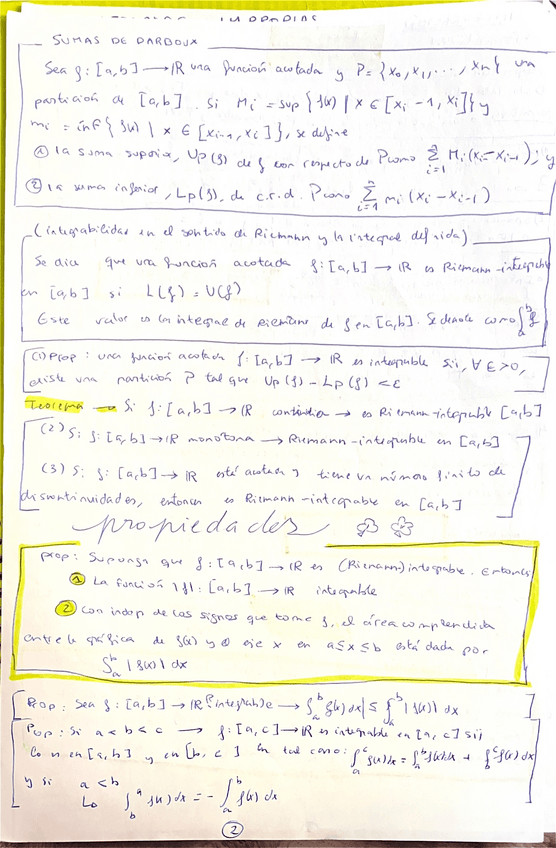 SUMAS DE DARBOUX
Sea f: [a,b] → IR una función acotada y P = {x₀, x₁, ..., xₙ} una
partición de [a,b]. Si Mi = sup{ f(x) | x ∈ [xi-1, xi]} y
mi = inf{ f(x) | x ∈ [xi-1, xi]}, se define
① la suma superior, Up(f) de f con respecto de P como Σ_{i=1}^{n} Mi(xi-xi-1); y
② la suma inferior, Lp(f), de c.r.d. P como Σ_{i=1}^{n} mi(xi-xi-1)
(integrabilidad en el sentido de Riemann y la integral definida)
Se dice que una función acotada f: [a,b] → IR es Riemann-integrable
en [a,b] si L(f) = U(f)
Este valor es la integral de Riemann de f en [a,b]. Se denote como ∫_a^b f
(1) Prop: una función acotada f: [a,b] → IR es integrable sii, ∀ ε>0,
existe una partición P tal que Up(f) - Lp(f) < ε
Teorema → Si f: [a,b] → IR continua → es Riemann-integrable [a,b]
(2) Si f: [a,b] → IR monótona → Riemann-integrable en [a,b]
(3) Si f: [a,b] → IR está acotada y tiene un número finito de
discontinuidades, entonces es Riemann-integrable en [a,b]
propiedades
prop: Suponga que f: [a,b] → IR es (Riemann) integrable. Entonces
① La función |f|: [a,b] → IR integrable
② Con indep de los signos que tome f, el área comprendida
entre la gráfica de f(x) y el eje x en a≤x≤b está dada por
∫_a^b |f(x)| dx
Prop: Sea f: [a,b] → IR integrable → |∫_a^b f(x) dx| ≤ ∫_a^b |f(x)| dx
Prop: Si a < b < c → f: [a,c] → IR es integrable en [a,c] sii
lo es en [a,b] y en [b,c] En tal caso: ∫_a^c f(x)dx = ∫_a^b f(x)dx + ∫_b^c f(x)dx
y si a < b
↳ ∫_b^a f(x) dx = - ∫_a^b f(x) dx
②